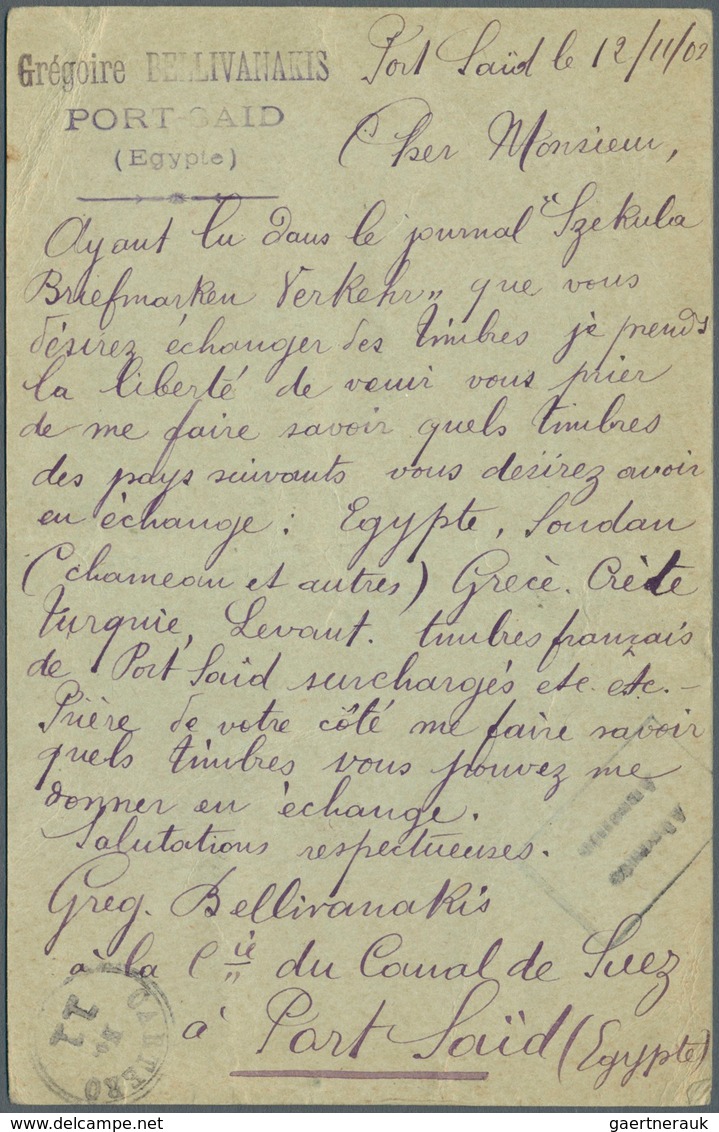 Grégoire BELLIVANAKIS
PORT-SAID
(Egypte)
Port Saïd le 12/11/02
Cher Monsieur,
Ayant lu dans le journal "Szekula
Briefmarken Verkehr„ que vous
désirez échanger des timbres je prends
la liberté de venir vous prier
de me faire savoir quels timbres
des pays suivants vous désirez avoir
en échange : Egypte, Soudan
(chameau et autres) Grècè. Crète
Turquie, Levant. timbres français
de Port Saïd surchargés etc. etc. -
Prière de votre côté me faire savoir
quels timbres vous pouvez me
donner en échange.
Salutations respectueuses.
Greg. Bellivanakis
à la Cie du Canal de Suez
à Port Saïd (Egypte)
CARTERO
No.
11
gaertnerauk